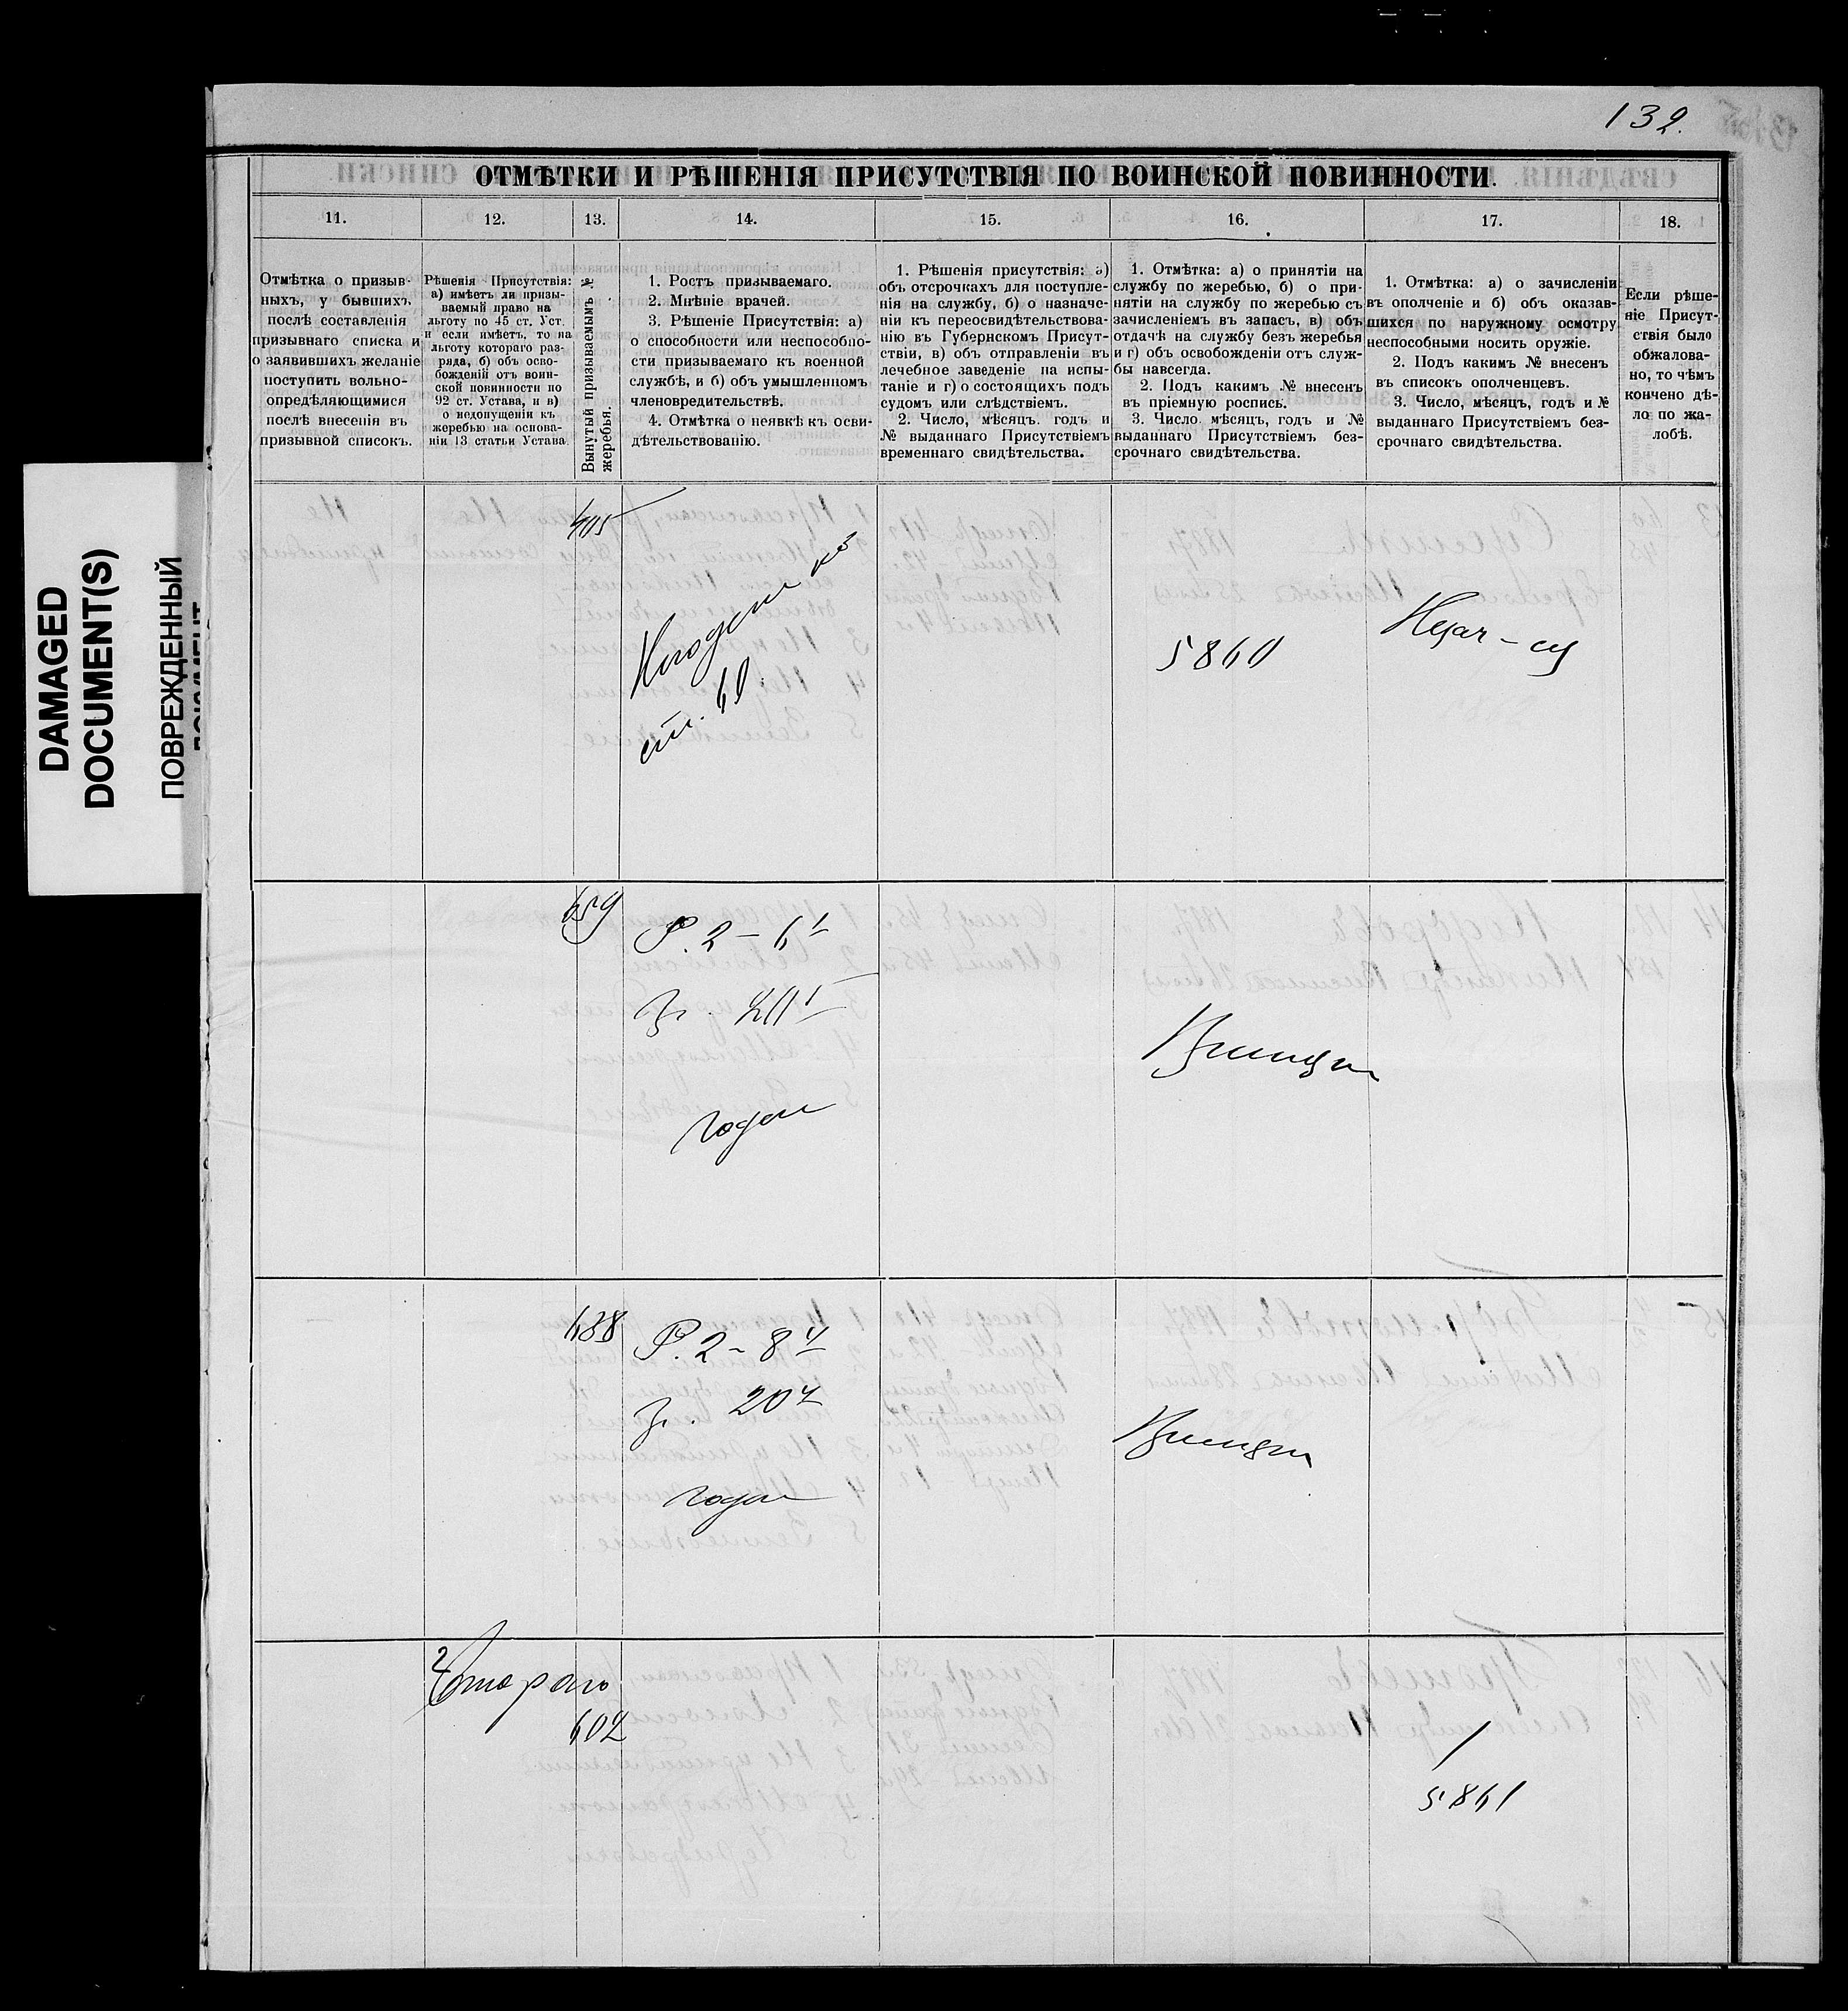 132.
ОТМѢТКИ И РѢШЕНІЯ ПРИСУТСТВІЯ ПО ВОИНСКОЙ ПОВИННОСТИ.
11.
12.
13.
14.
15.
16.
17.
18.
Отмѣтка о призыв-
ныхъ, у бывшихъ
послѣ составленія
призывнаго списка и
о заявившихъ желаніе
поступить вольно-
опредѣляющимися
послѣ внесенія въ
призывной списокъ.
Рѣшенія Присутствія:
а) имѣетъ ли призы-
ваемый право на
льготу по 45 ст. Уст.
и если имѣетъ, то на
льготу котораго раз-
ряда, б) объ осво-
божденій отъ воин-
ской повинности по
92 ст. Устава, и в)
о недопущеніи къ
жеребью на основа-
ніи 13 статьи Устава.
Вынутый призываемымъ №
жеребья.
1. Ростъ призываемаго.
2. Мнѣніе врачей.
3. Рѣшеніе Присутствія: а)
о способности или неспособно-
сти призываемаго къ военной
службѣ, и б) объ умышленномъ
членовредительствѣ.
4. Отмѣтка о неявкѣ къ осви-
дѣтельствованію.
1. Рѣшенія присутствія: а)
объ отсрочкахъ для поступле-
нія на службу, б) о назначе-
ніи къ переосвидѣтельствова-
нію въ Губернскомъ Присут-
ствіи, в) объ отправленіи въ
лечебное заведеніе на испы-
таніе и г) о состоящихъ подъ
судомъ или слѣдствіемъ.
2. Число, мѣсяцъ, годъ и
№ выданнаго Присутствіемъ
временнаго свидѣтельства.
1. Отмѣтка: а) о принятіи на
службу по жеребью, б) о при-
нятіи на службу по жеребью съ
зачисленіемъ въ запасъ, в) объ
отдачѣ на службу безъ жеребья
и г) объ освобожденіи отъ служ-
бы навсегда.
2. Подъ какимъ № внесенъ
въ пріемную роспись.
3. Число мѣсяцъ, годъ и №
выданнаго Присутствіемъ без-
срочнаго свидѣтельства.
1. Отмѣтка: а) о зачисленіи
въ ополченіе и б) объ оказав-
шихся по наружному осмотру
неспособными носить оружіе.
2. Подъ какимъ № внесенъ
въ списокъ ополченцевъ.
3. Число, мѣсяцъ, годъ и №
выданнаго Присутствіемъ без-
срочнаго свидѣтельства.
Если рѣше-
ніе Присут-
ствія было
обжалова-
но, то чѣмъ
кончено дѣ-
ло по жа-
лобѣ.
DAMAGED
DOCUMENT(S)
ПОВРЕЖДЕННЫЙ
405
ст. 60
5860
659
Р. 2 – 6
годен
Принят
688
Р. 2 – 8
годен
Принят
602
5861